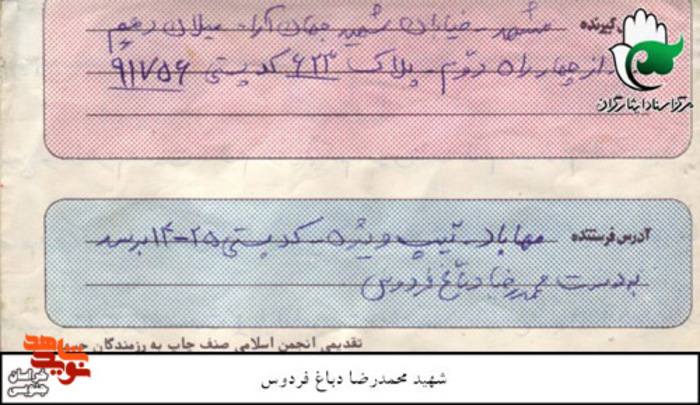 گیرنده مشهد - خیابان شهید جهان آرا - میلان دهم
از چهار راه دوم - پلاک ۶۲۳ کد پستی ۹۱۷۵۶
مرکز اسناد ایثارگران
آدرس فرستنده مهاباد - تیپ ویژه - کد پستی ۲۵-۱۴ برسد
بدست محمدرضا دباغ فردوس
تقدیمی انجمن اسلامی صنف چاپ به رزمندگان
نوید شاهد
خراسان جنوبی
شهید محمدرضا دباغ فردوس